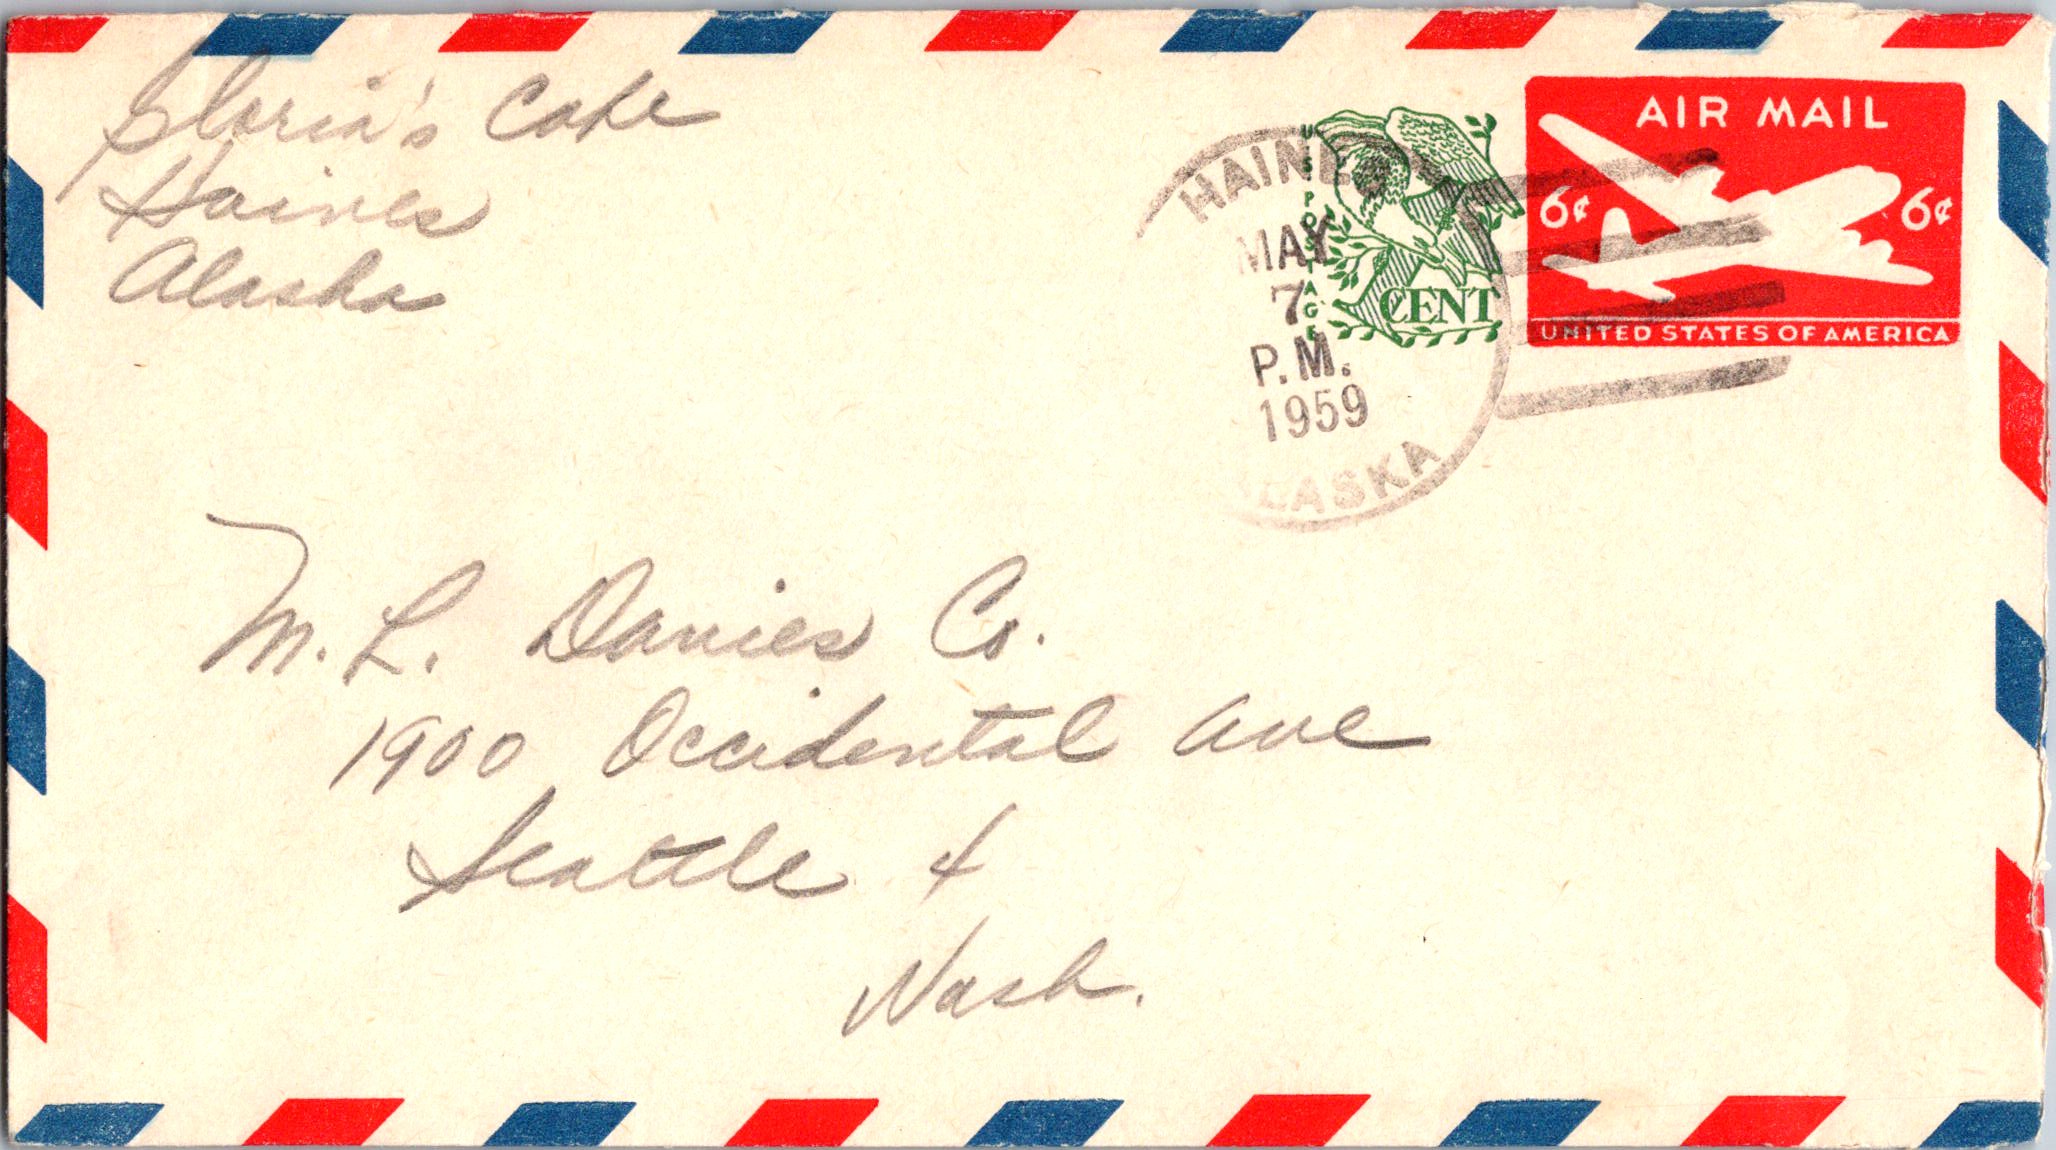 Gloria's Cafe
Haines
Alaska
HAINES
MAY
7
P.M.
1959
ALASKA
U.S. POSTAGE
1 CENT
AIR MAIL
6¢ 6¢
UNITED STATES OF AMERICA
M. L. Davies Co.
1900 Occidental Ave
Seattle 4
Wash.